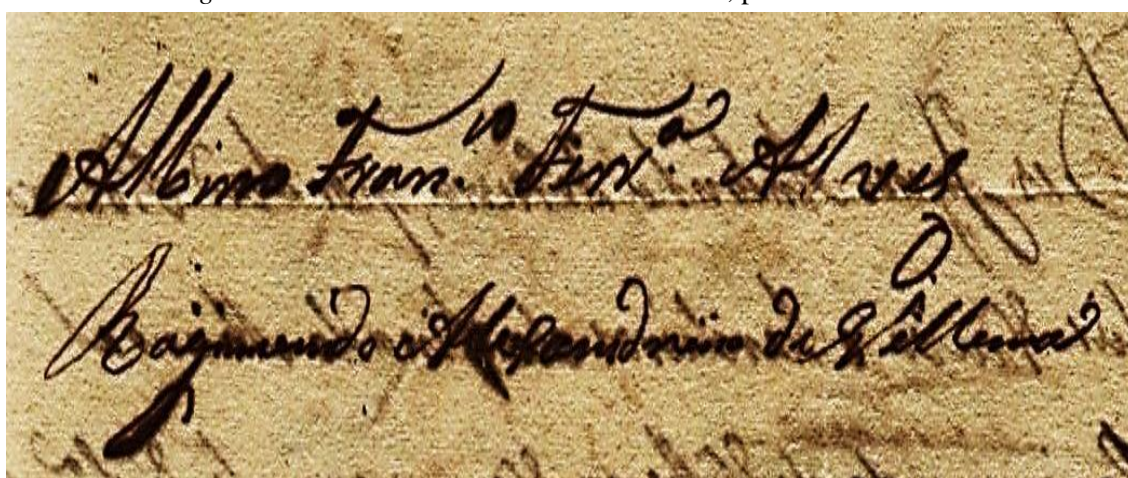 Albino Fran.co Ferr.a Alves
Raymundo Alexandrino de Villena